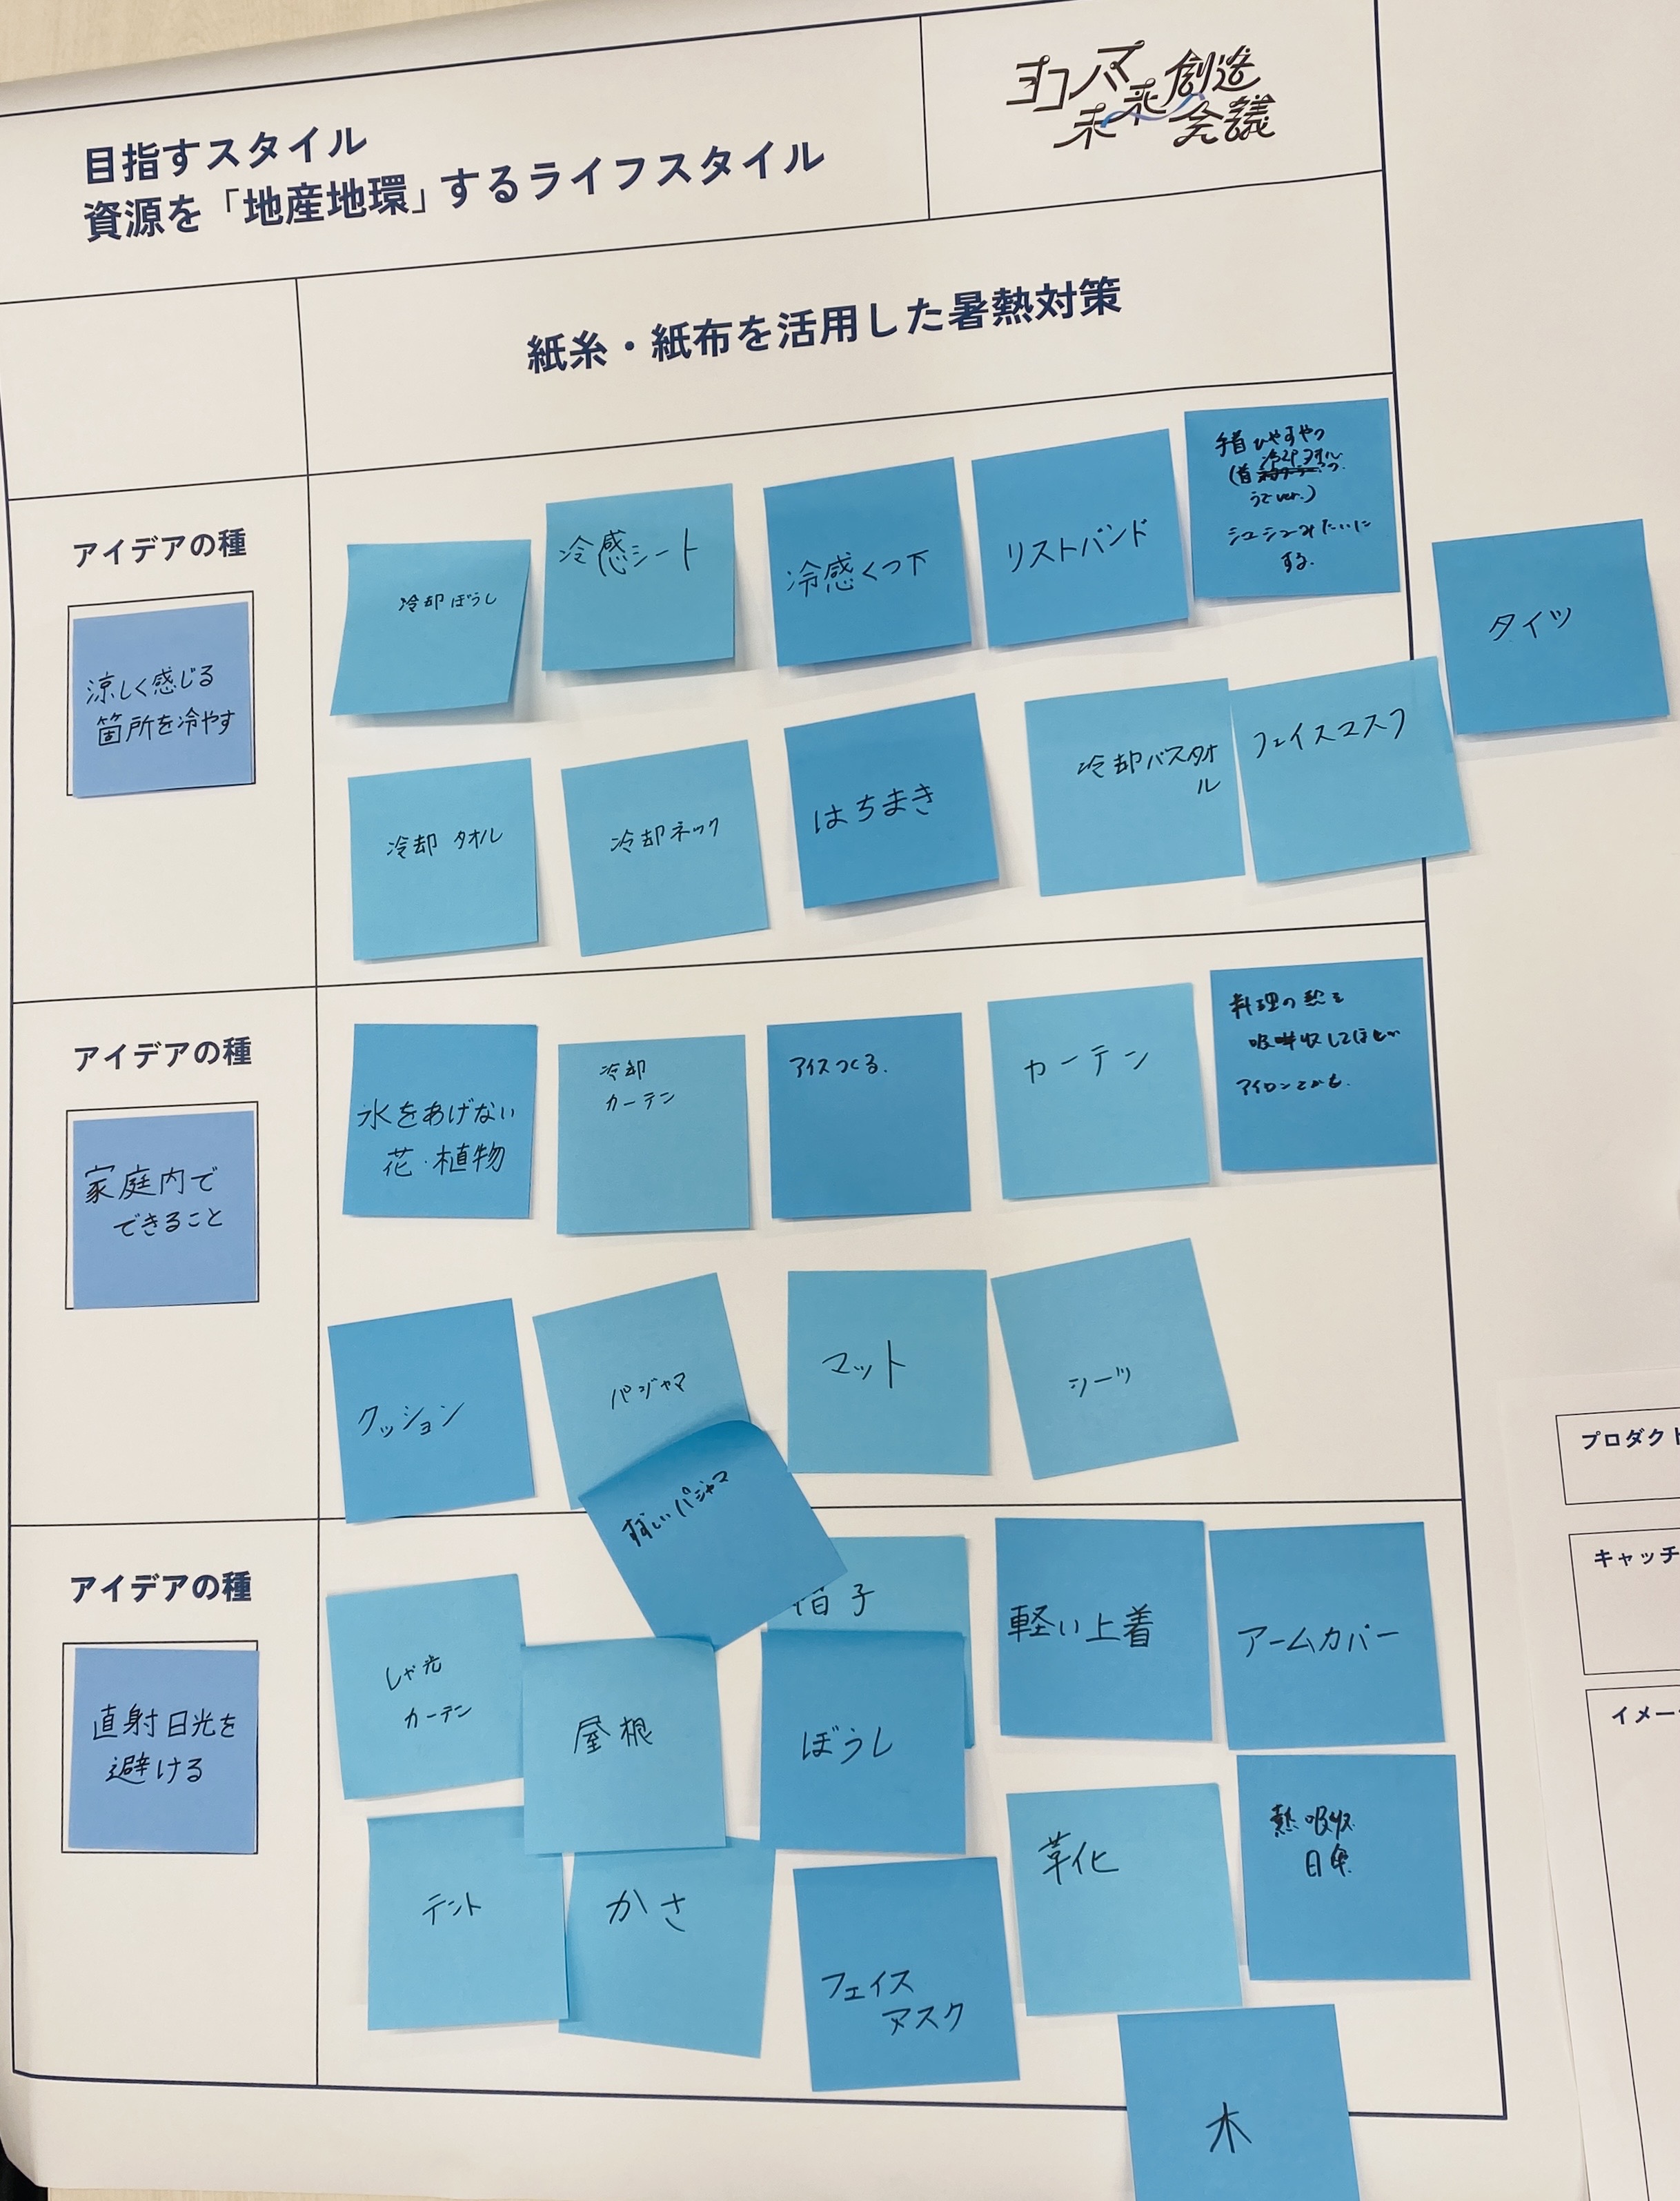 目指すスタイル
資源を「地産地環」するライフスタイル
ヨコハマ
未来創造
会議
紙糸・紙布を活用した暑熱対策
アイデアの種
涼しく感じる
箇所を冷やす
冷却ぼうし
冷感シート
冷感くつ下
リストバンド
手首ひやすやつ
(首冷却タオル
うでver.)
シュシュみたいに
する。
タイツ
冷却タオル
冷却ネック
はちまき
冷却バスタオ
ル
フェイスマスク
アイデアの種
家庭内で
できること
水をあげない
花・植物
冷却
カーテン
アイスつくる。
カーテン
料理の熱を
吸収してほしい
アイロンとかも。
クッション
パジャマ
涼しいパジャマ
マット
シーツ
アイデアの種
直射日光を
避ける
しゃ光
カーテン
屋根
帽子
ぼうし
軽い上着
アームカバー
テント
かさ
フェイス
マスク
革化
熱吸収
日傘
木
プロダクト
キャッチ
イメー